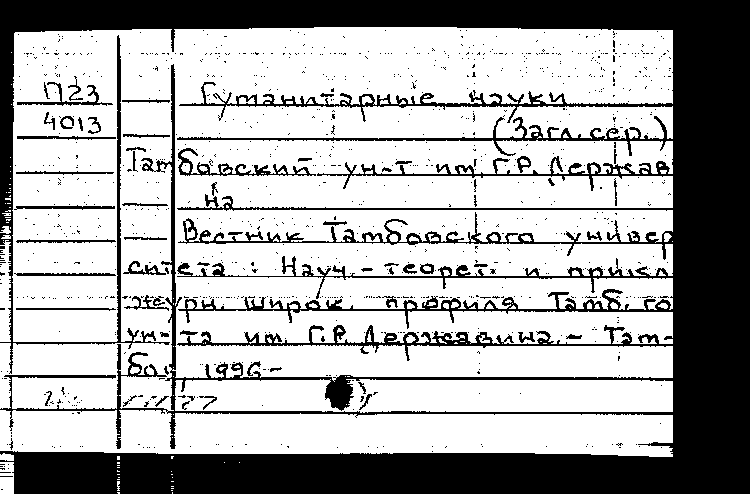 П23 Гуманитарные науки
4013 (Загл. сер.)
Тамбовский ун-т им. Г.Р. Держав
на
Вестник Тамбовского универ
ситета : Науч.-теорет. и прикл
журн. широк. профиля Тамб. го
ун-та им. Г.Р. Державина. - Там-
бов, 1996-